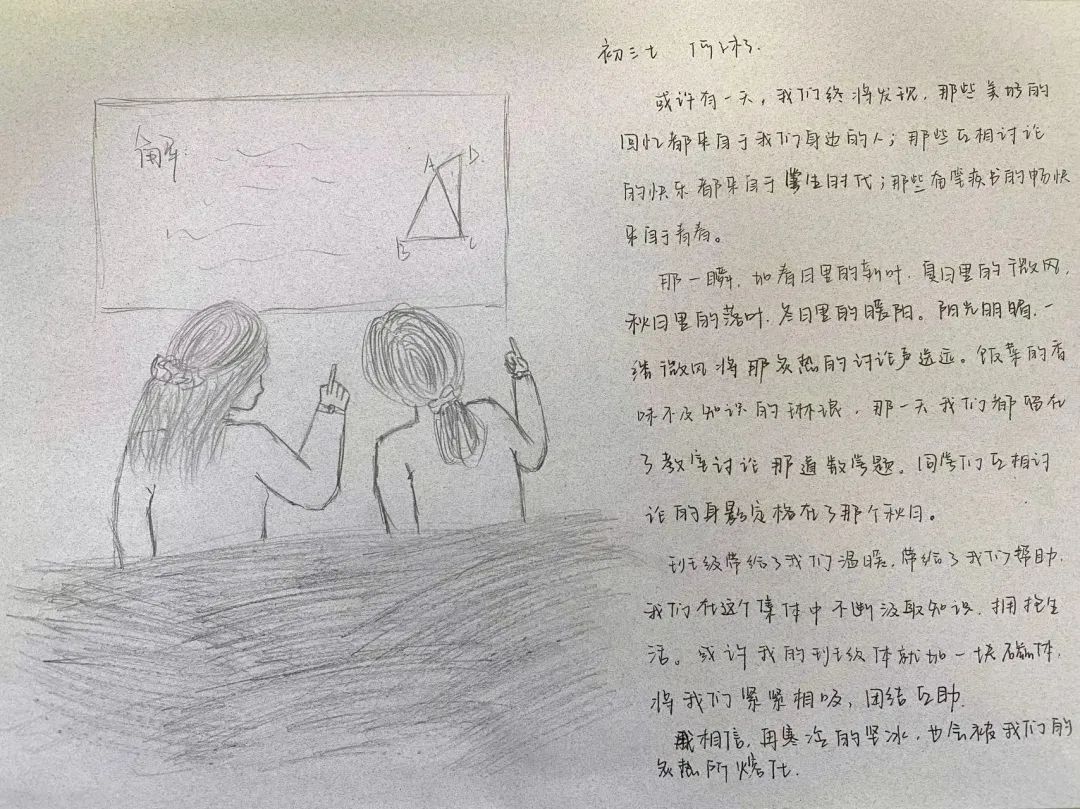 解:
A D.
B C
初三七 何
或许有一天，我们终将发现，那些美好的
回忆都来自于我们身边的人；那些互相讨论
的快乐都来自于学生时代；那些奋笔疾书的畅快
来自于青春。
那一瞬，如春日里的新叶，夏日里的微风，
秋日里的落叶，冬日里的暖阳。阳光明媚，一
缕微风将那炙热的讨论声送远。饭菜的香
味不及知识的琳琅，那一天我们都留在
了教室讨论那道数学题。同学们互相讨
论的身影定格在了那个秋日。
班级带给了我们温暖，带给了我们帮助，
我们在这个集体中不断汲取知识，拥抱生
活。或许我的班级体就如一块磁体，
将我们紧紧相吸，团结互助。
我相信，再寒冷的坚冰，也会被我们的
炙热所熔化.